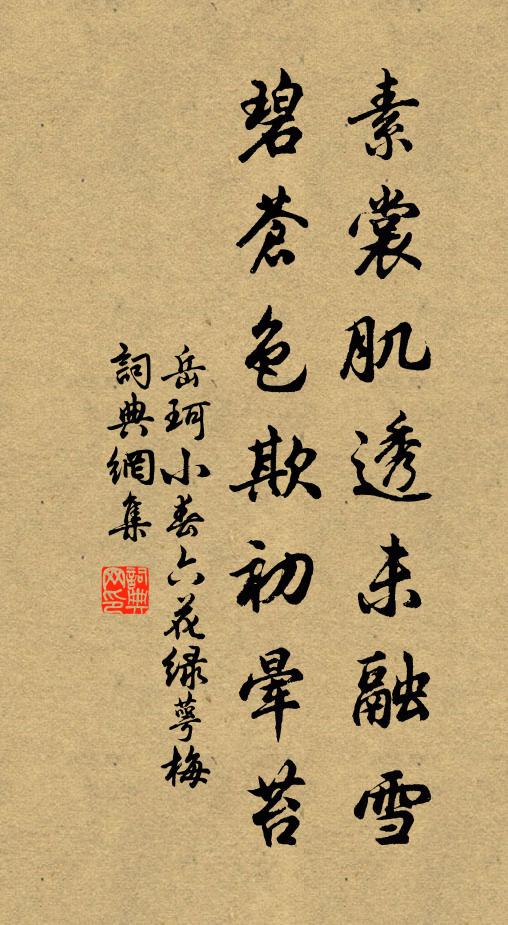 素裳肌透未融雪
碧蒼色欺初暈苔
岳珂小春六花绿萼梅
詞典網集
詞典网印